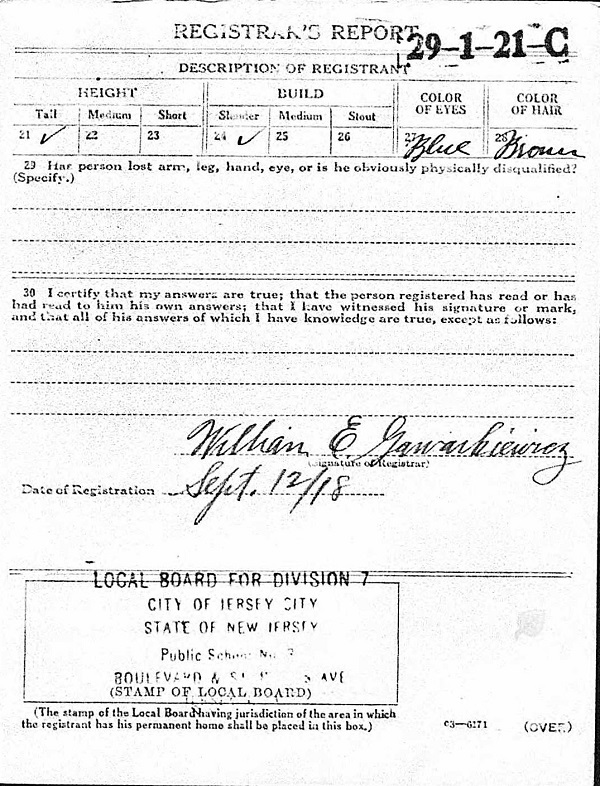 REGISTRAR'S REPORT
29-1-21-C
DESCRIPTION OF REGISTRANT
HEIGHT BUILD COLOR OF EYES COLOR OF HAIR
Tall Medium Short Slender Medium Stout
21 ✓ 22 23 24 ✓ 25 26 27 Blue 28 Brown
29 Has person lost arm, leg, hand, eye, or is he obviously physically disqualified?
(Specify.)
30 I certify that my answers are true; that the person registered has read or has
had read to him his own answers; that I have witnessed his signature or mark,
and that all of his answers of which I have knowledge are true, except as follows:
William E. Gawarkiewicz
(Signature of Registrar)
Date of Registration Sept. 12/18
LOCAL BOARD FOR DIVISION 7
CITY OF JERSEY CITY
STATE OF NEW JERSEY
Public School No.
BOULEVARD & AVE
(STAMP OF LOCAL BOARD)
(The stamp of the Local Board having jurisdiction of the area in which
the registrant has his permanent home shall be placed in this box.)
03—6171 (OVER)